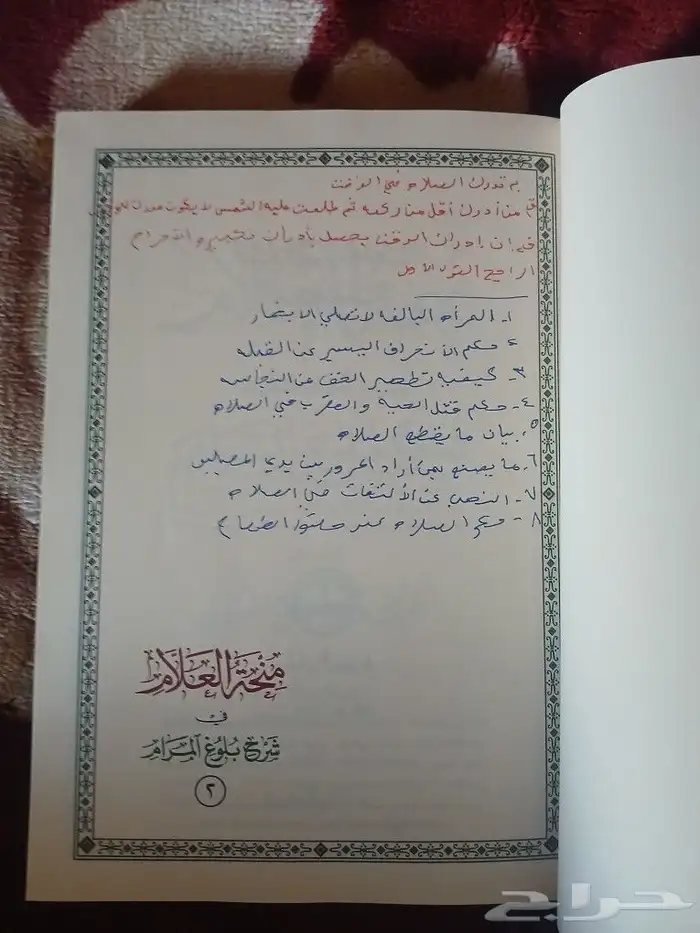 بم تدرك الصلاة في الوقت
من أدرك أقل من ركعة ثم طلعت عليه الشمس لا يكون مدرك
إدراك الوقت يحصل بإدراك تكبيرة الاحرام
الراجح القول الأول
١- المرأة البالغه لا تصلي الا بخمار
٢ حكم الأنحراف اليسير عن القبله
٣- كيفية تطهير الخف من النجاسه
٤- حكم قتل الحية والعقرب في الصلاة
٥. بيان ما يقطع الصلاة
٦. ما يصنع من أراد المرور بين يدي المصلي
٧- النهي عن الألتفات في الصلاة
٨- حكم الصلاة عند حضور الطعام
مِنْحَةُ العَلَّامِ
في
شَرْحِ بُلُوغِ المَرَامِ
٢
حراج